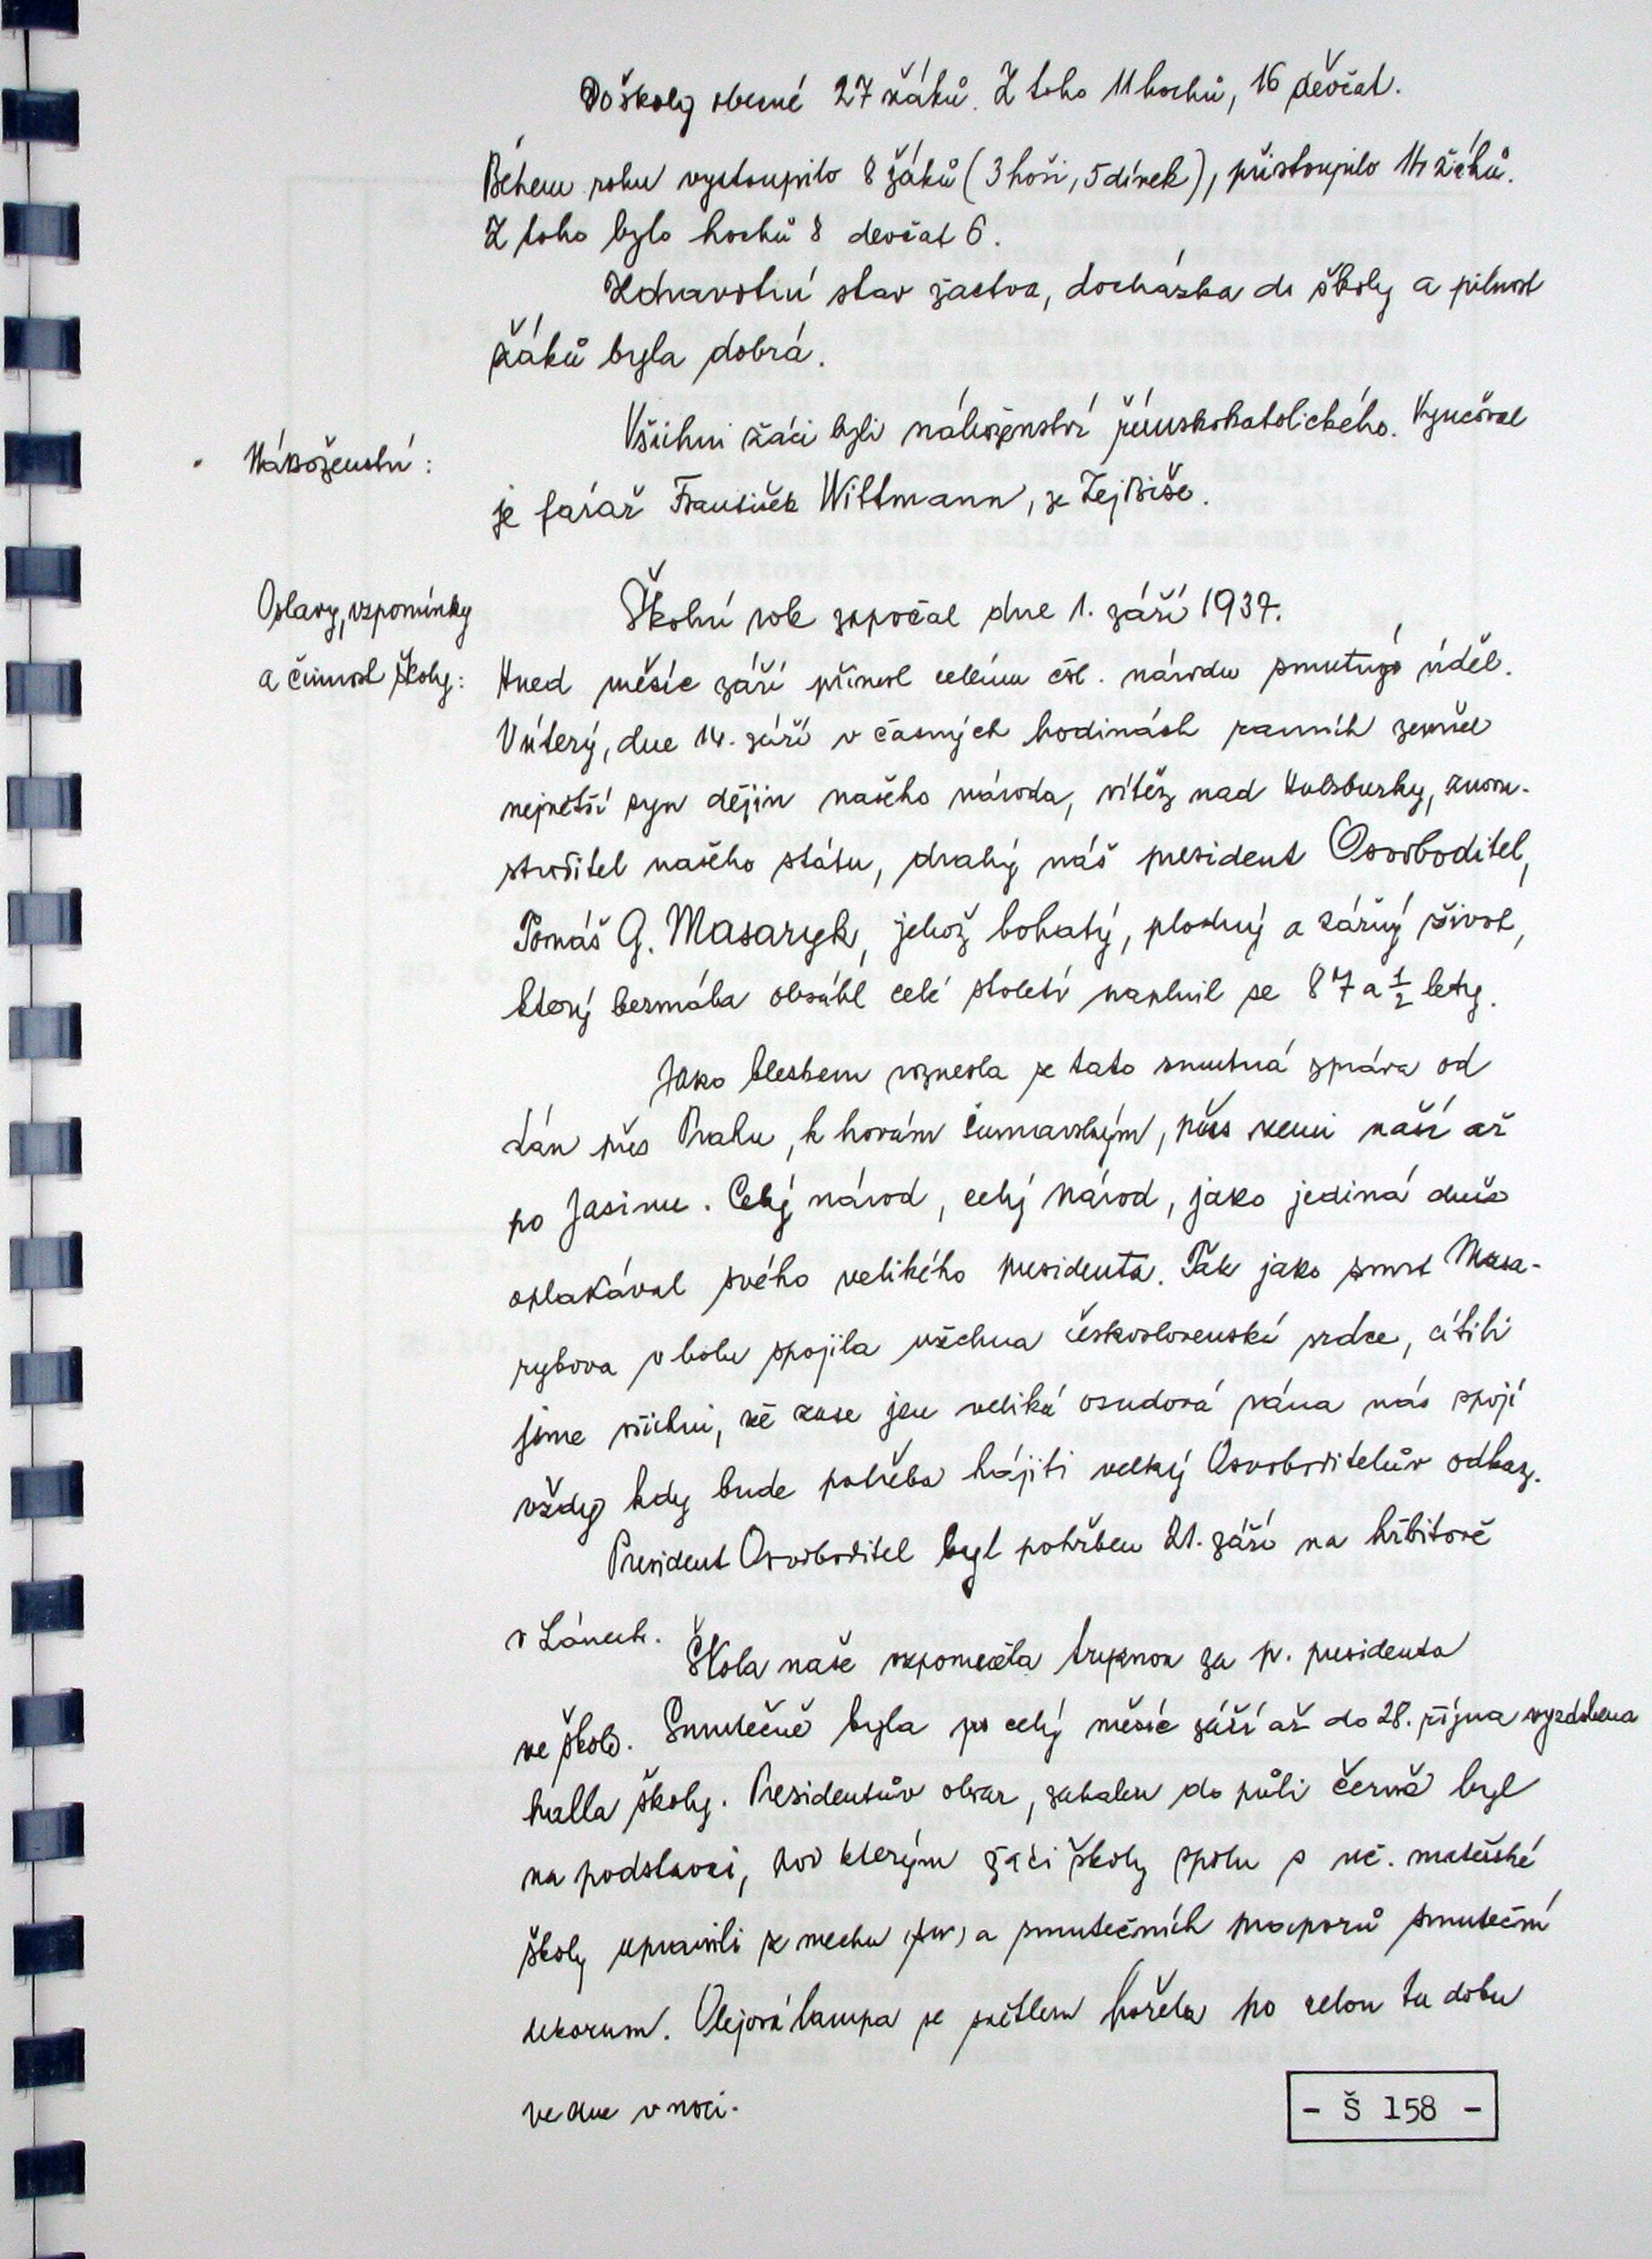 Do školy obecné 27 žáků. Z toho 11 hochů, 16 děvčat.
Během roku vystoupilo 8 žáků (3 hoši, 5 dívek), přistoupilo 14 žáků.
Z toho bylo hochů 8 děvčat 6.
Zdravotní stav žactva, docházka do školy a pilnost
žáků byla dobrá.
Náboženství:
Všichni žáci byli náboženství římskokatolického. Vyučoval
je farář František Wittmann, ze Zejbiše.
Oslavy, vzpomínky
a činnost školy:
Školní rok započal dne 1. září 1937.
Hned měsíc září přinesl celému čsl. národu smutný úděl.
V úterý, dne 14. září v časných hodinách ranních zemřel
největší syn dějin našeho národa, vítěz nad Habsburky, znovu-
stvořitel našeho státu, drahý náš president Osvoboditel,
Tomáš G. Masaryk, jehož bohatý, plodný a zářný život,
který bezmála obsáhl celé století naplnil se 87 a 1/2 lety.
Jako bleskem roznesla se tato smutná zpráva od
Lán přes Prahu, k horám šumavským, přes zemi naší až
po Jasinu. Celý národ, celý národ, jako jediná duše
oplakával svého velikého presidenta. Tak jako smrt Masa-
rykova v bolu spojila všechna československá srdce, cítili
jsme všichni, že zase jen veliká osudová rána nás spojí
vždy kdy bude potřeba hájiti velký Osvoboditelův odkaz.
President Osvoboditel byl pohřben 21. září na hřbitově
v Lánech.
Škola naše vzpomněla tryznou za p. presidenta
ve škole. Smutečně byla po celý měsíc září až do 28. října vyzdobena
halla školy. Presidentův obraz, zahalen do půli černě byl
na podstavci, kol kterým žáci školy spolu s uč. mateřské
školy upravili z mechu a smutečních praporů smuteční
dekorum. Olejová lampa se světlem hořela po celou tu dobu
ve dne v noci.
- Š 158 -